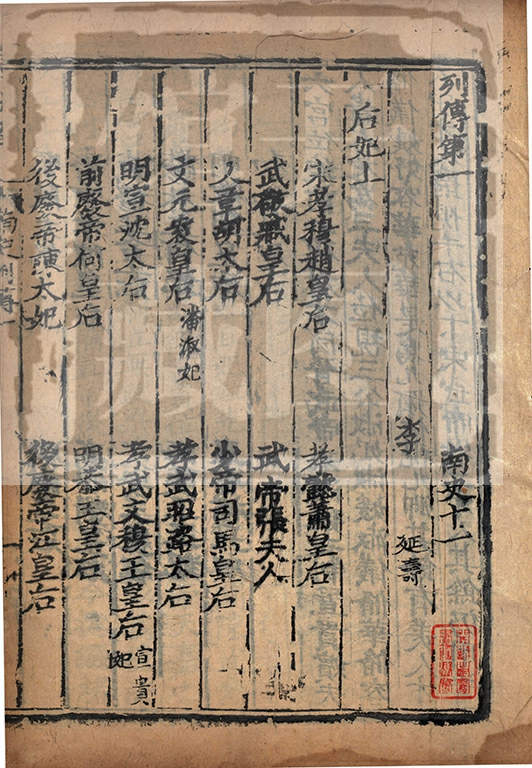 列傳第一 南史十一
李延壽
后妃上
宋孝穆趙皇后 孝懿蕭皇后
武敬臧皇后 武帝張夫人
文章胡太后 少帝司馬皇后
文元袁皇后 潘淑妃 孝武昭路太后
明宣沈太后 孝武文穆王皇后 宣貴妃
前廢帝何皇后 明恭王皇后
後廢帝陳太妃 後廢帝江皇后